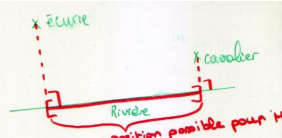 écurie
cavalier
Rivière
position possible pour